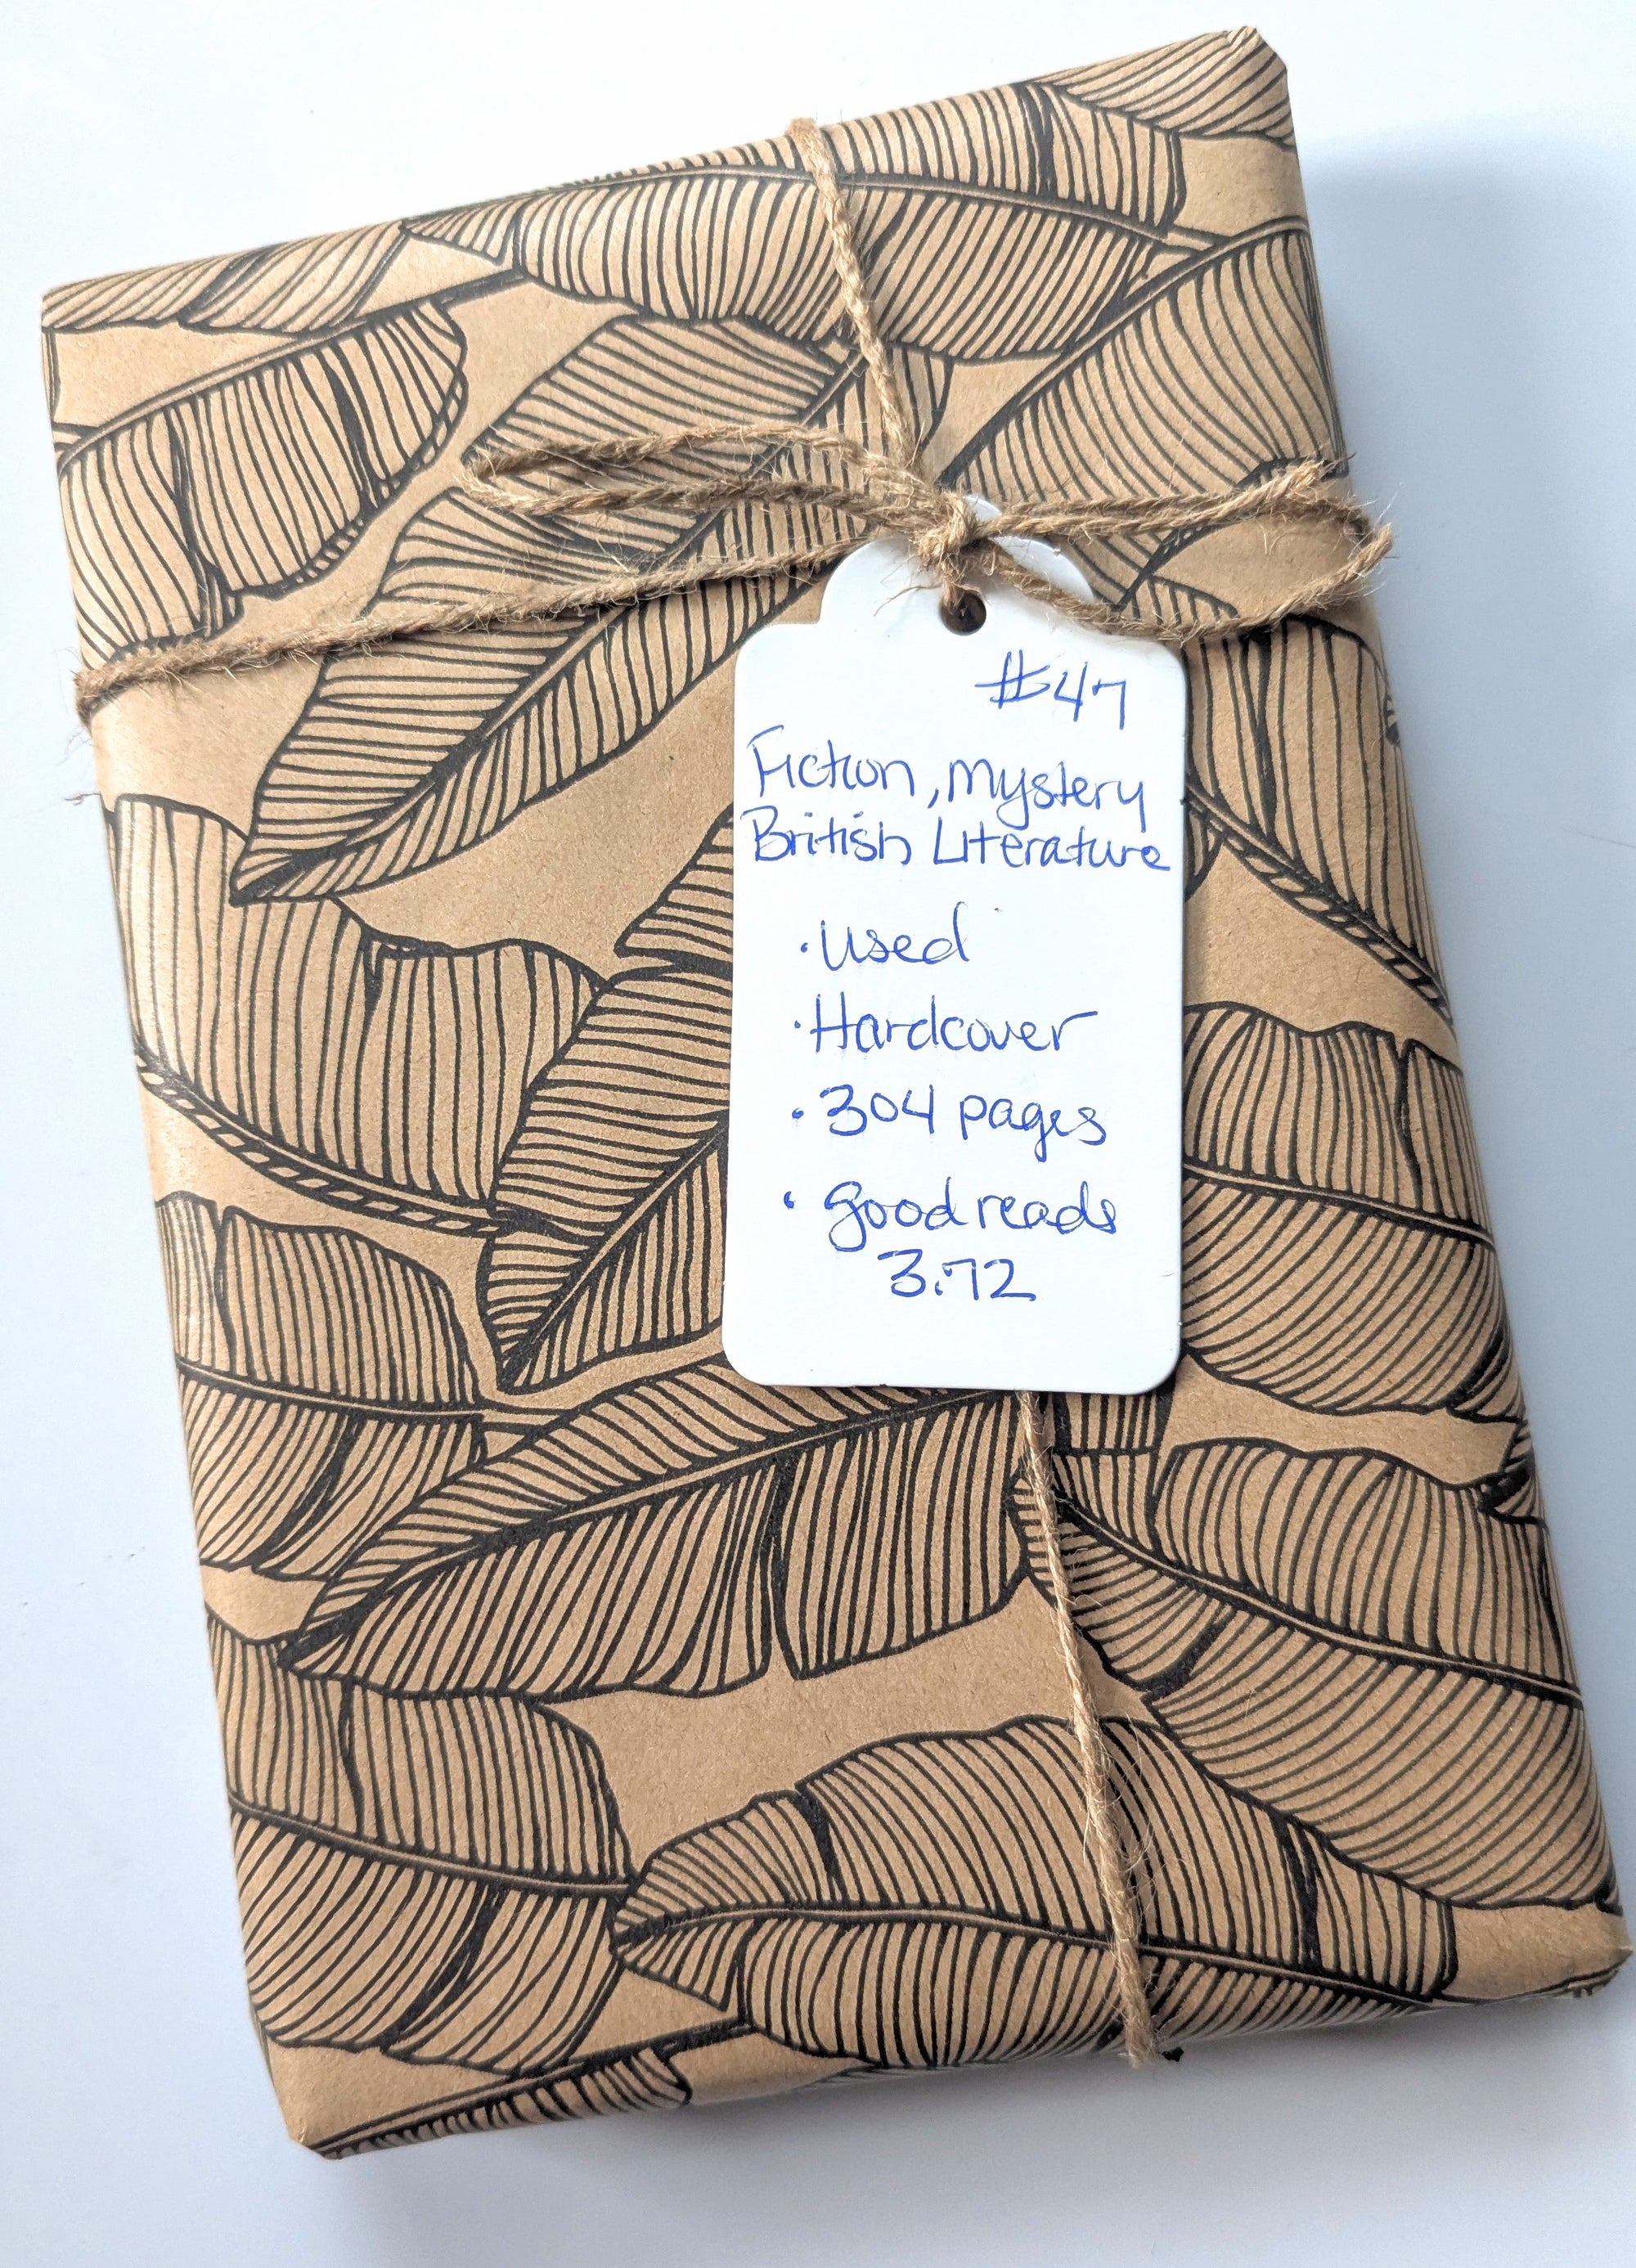 #47
Fiction, Mystery
British Literature
· Used
· Hardcover
· 304 pages
· goodreads
3.72